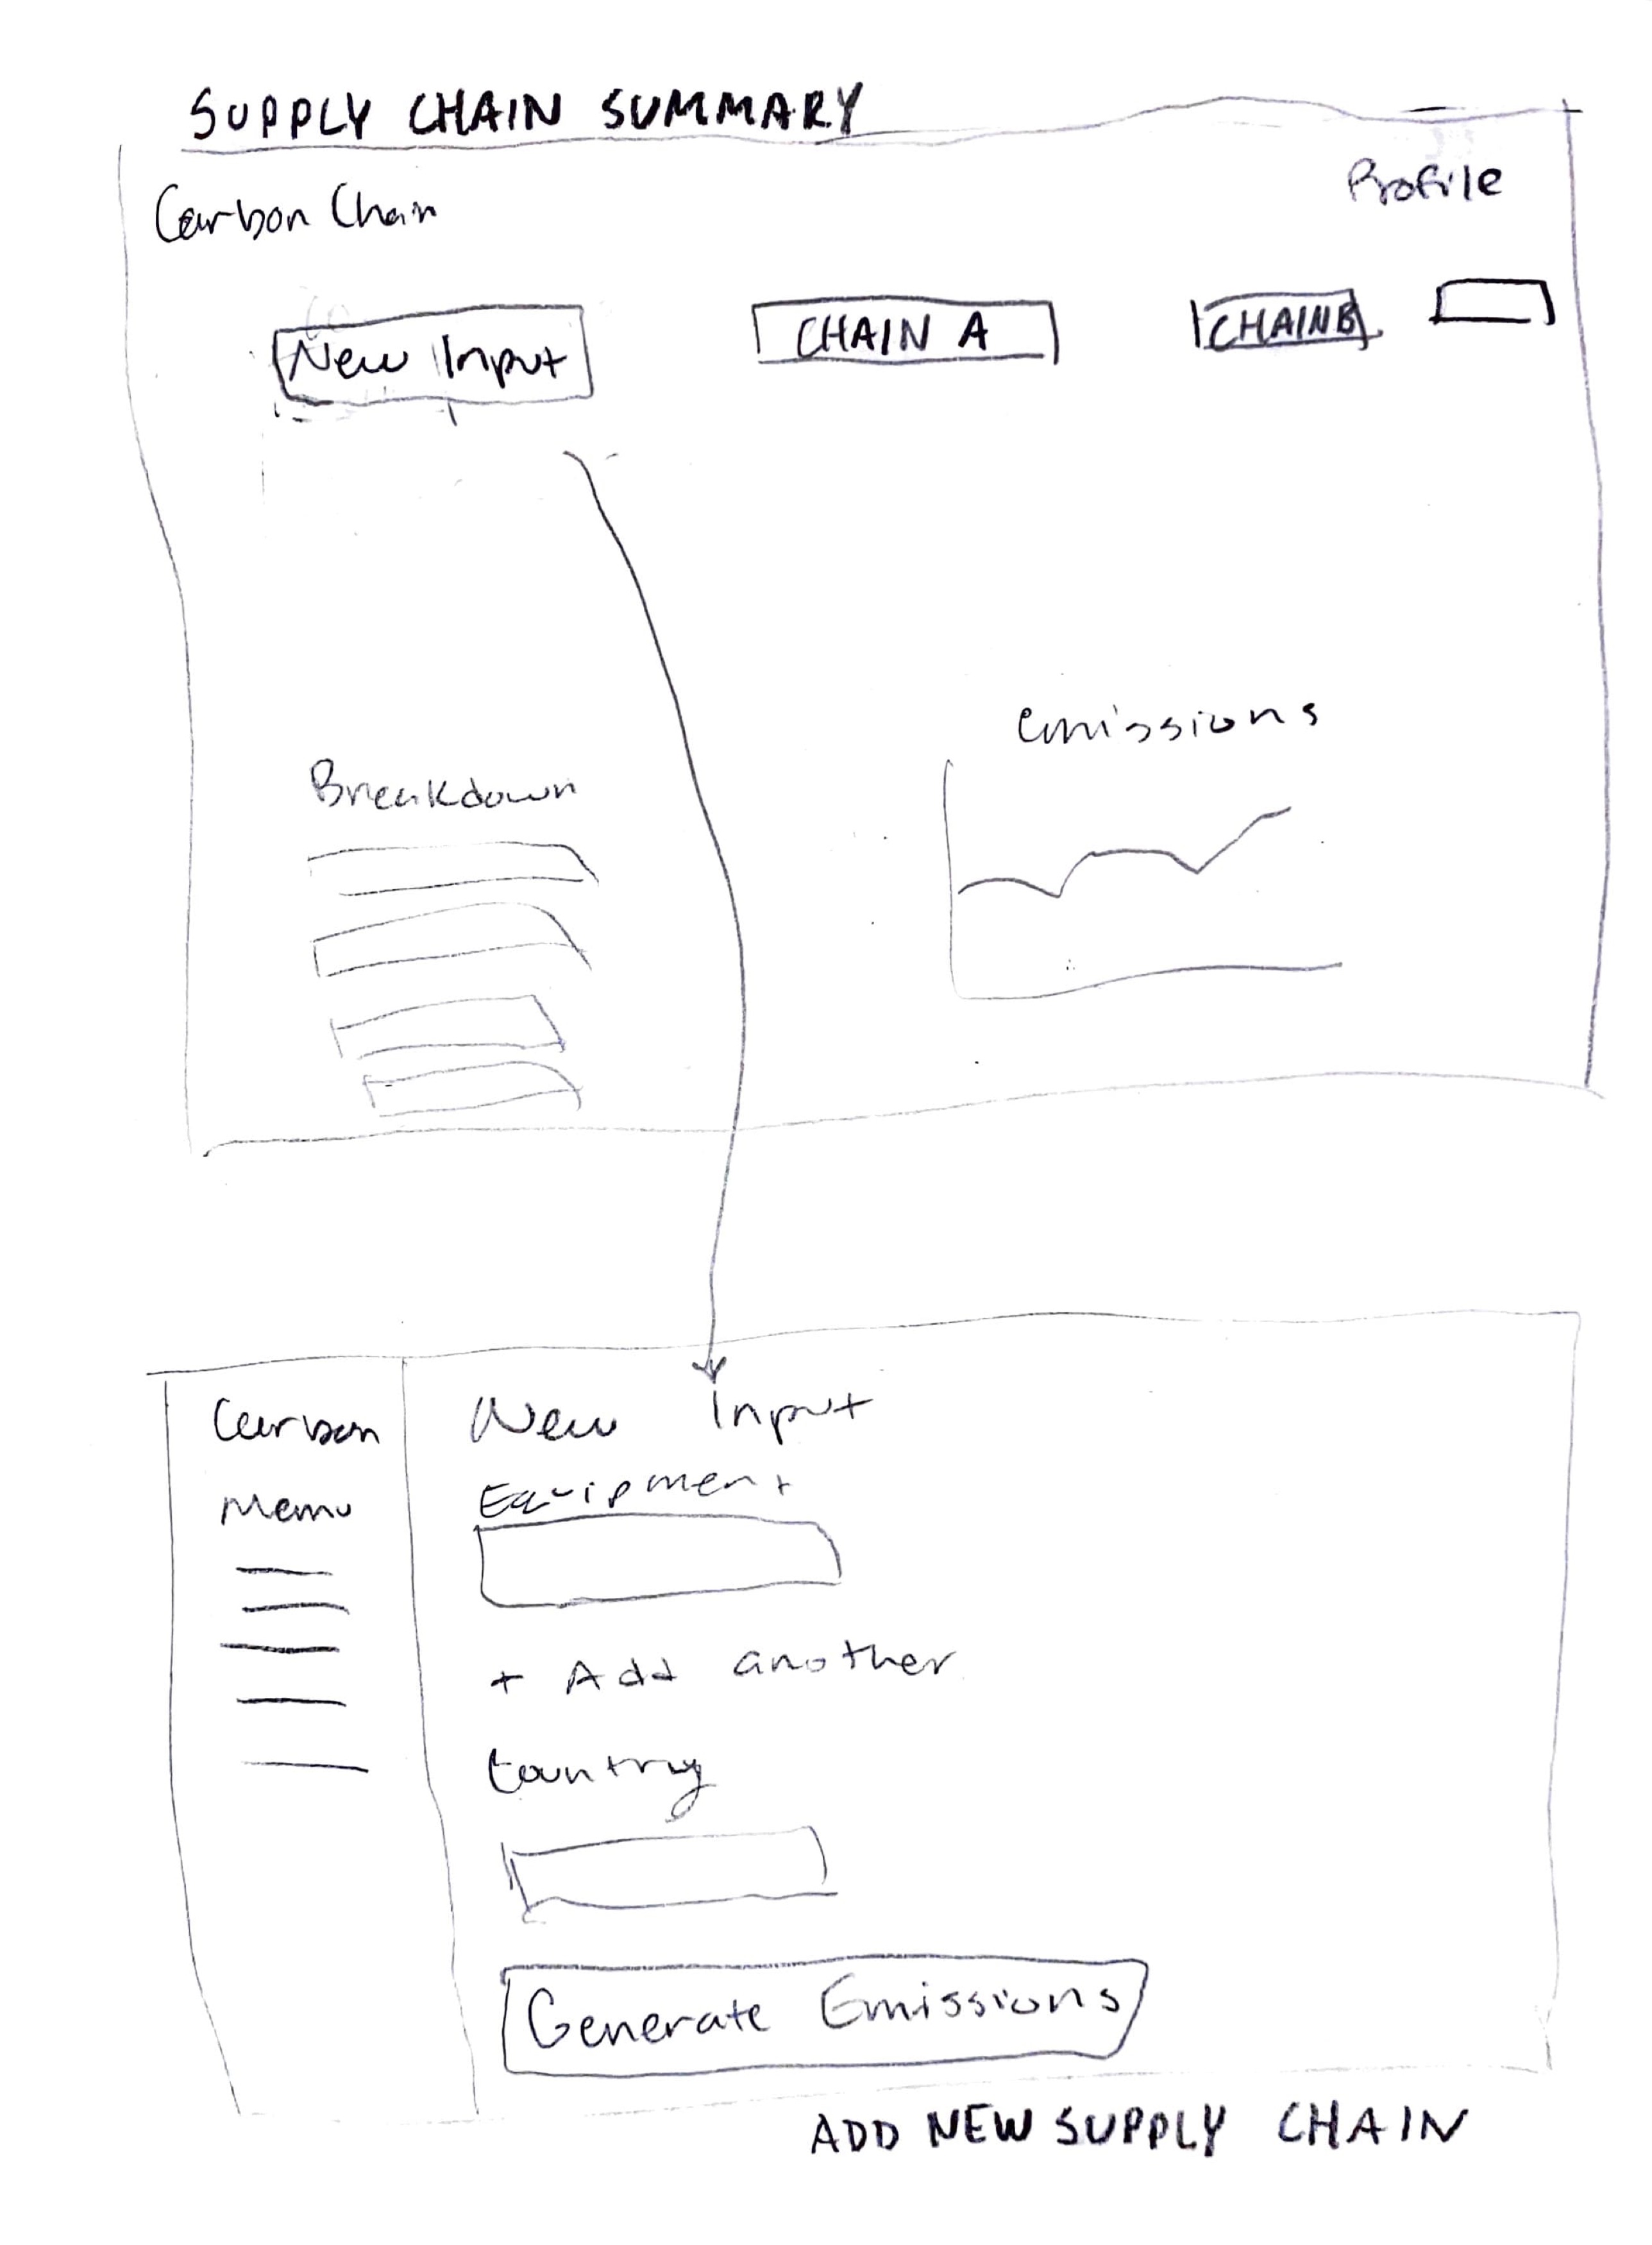 SUPPLY CHAIN SUMMARY
Carbon Chain
Profile
New Input
CHAIN A
CHAIN B
emissions
Breakdown
Carbon
New Input
Menu
Equipment
+ Add another
Country
Generate Emissions
ADD NEW SUPPLY CHAIN